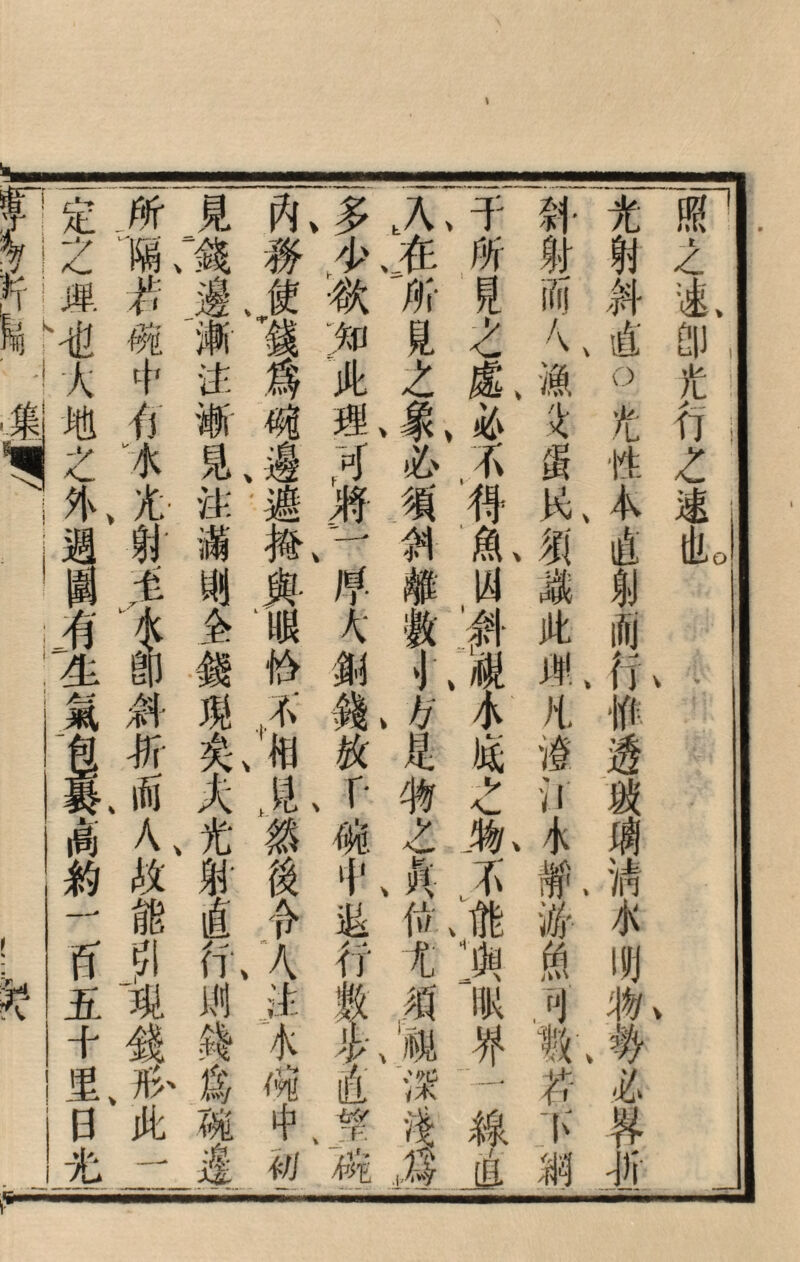 照之速、卽光行之速也。
光射斜直○光性本直射而行、惟透玻璃淸水明物、勢必畧折
斜射而入、漁父蛋民、須識此理、凡澄江水靜、游魚可數、若下網
于所見之處、必不得魚、因斜視水底之物、不能與眼界一線直
入、在所見之象、必須斜離數寸、方是物之眞位、尤須視深淺爲
多少、欲知此理、可將一厚大銅錢、放于碗中、退行數步、直望碗
內、務使錢爲碗邊遮掩、與眼恰不相見、然後令人注水碗中、初
見錢邊、漸注漸見、注滿則全錢現矣、夫光射直行、則錢爲碗邊
所隔、若碗中有水、光射至水卽斜折而入、故能引現錢形、此一
定之理也大地之外、週圍有生氣包裹、高約一百五十里、日光
集